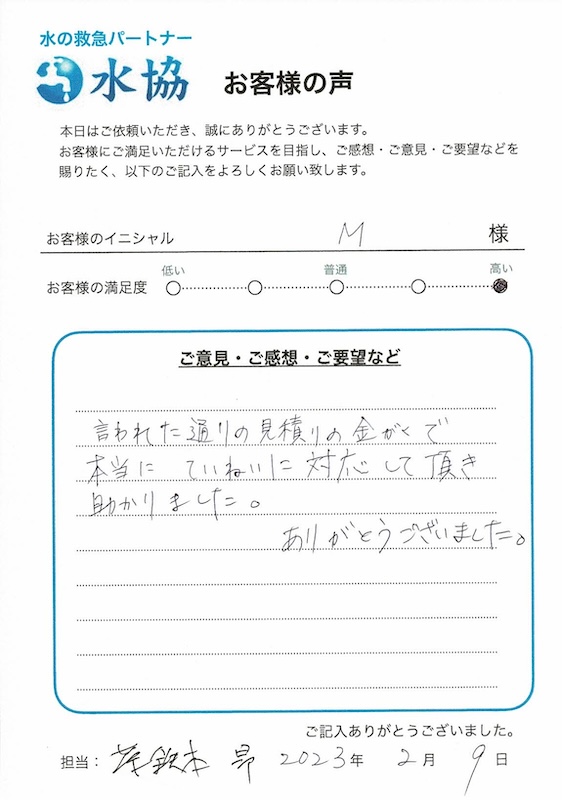 水の救急パートナー
水協 お客様の声
本日はご依頼いただき、誠にありがとうございます。
お客様にご満足いただけるサービスを目指し、ご感想・ご意見・ご要望などを
賜りたく、以下のご記入をよろしくお願い致します。
お客様のイニシャル M 様
低い 普通 高い
お客様の満足度
ご意見・ご感想・ご要望など
言われた通りの見積りの金がくで
本当に ていねいに 対応して頂き
助かりました。
ありがとうございました。
ご記入ありがとうございました。
担当: 昴 2023年 2月 9日